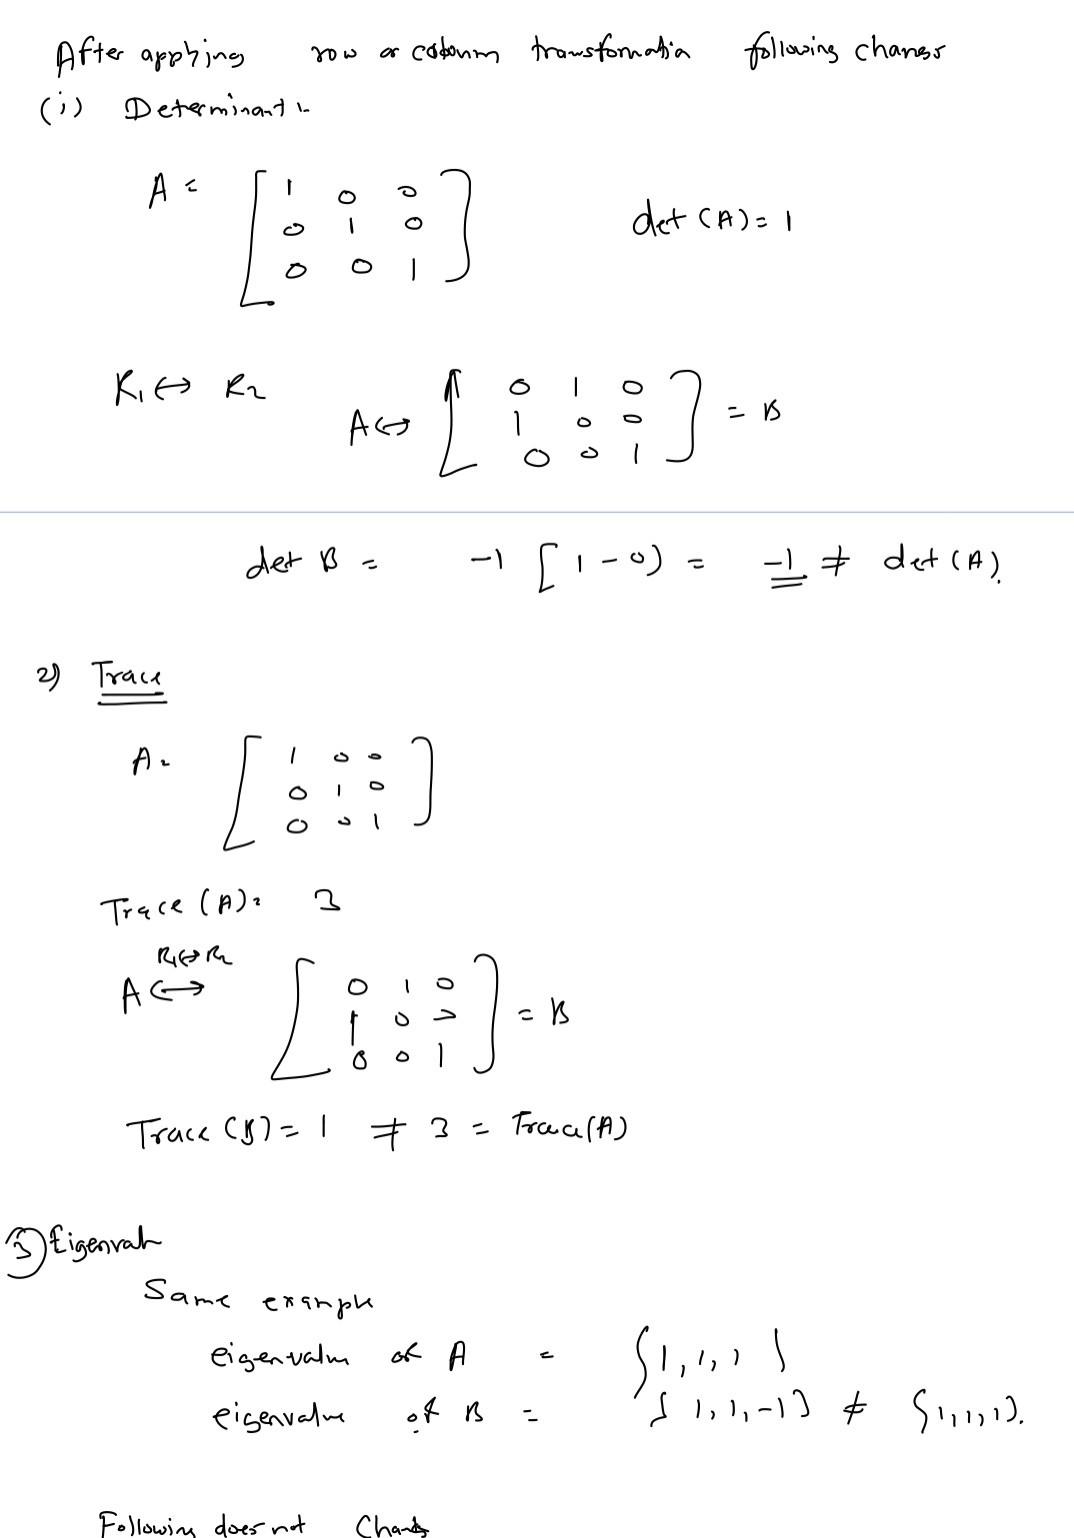 After applying row or column transformation following changes
(i) Determinant :-
A = [ 1 0 0
0 1 0
0 0 1 ] det (A) = 1
R1 ↔ R2
A ↔ [ 0 1 0
1 0 0
0 0 1 ] = B
det B = -1 [ 1 - 0 ) = -1 ≠ det (A).
2) Trace
A = [ 1 0 0
0 1 0
0 0 1 ]
Trace (A) = 3
R1 ↔ R2
A ↔ [ 0 1 0
1 0 0
0 0 1 ] = B
Trace (B) = 1 ≠ 3 = Trace (A)
3) Eigenval
Same example
eigenvalue of A = { 1, 1, 1 }
eigenvalue of B = { 1, 1, -1 } ≠ { 1, 1, 1 }.
Following does not